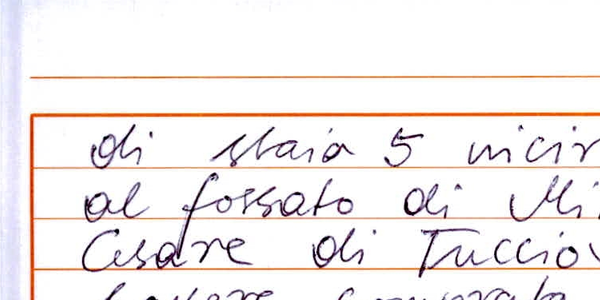 di staia 5 vicin
al fossato di Mi
Cesare di Tuccio